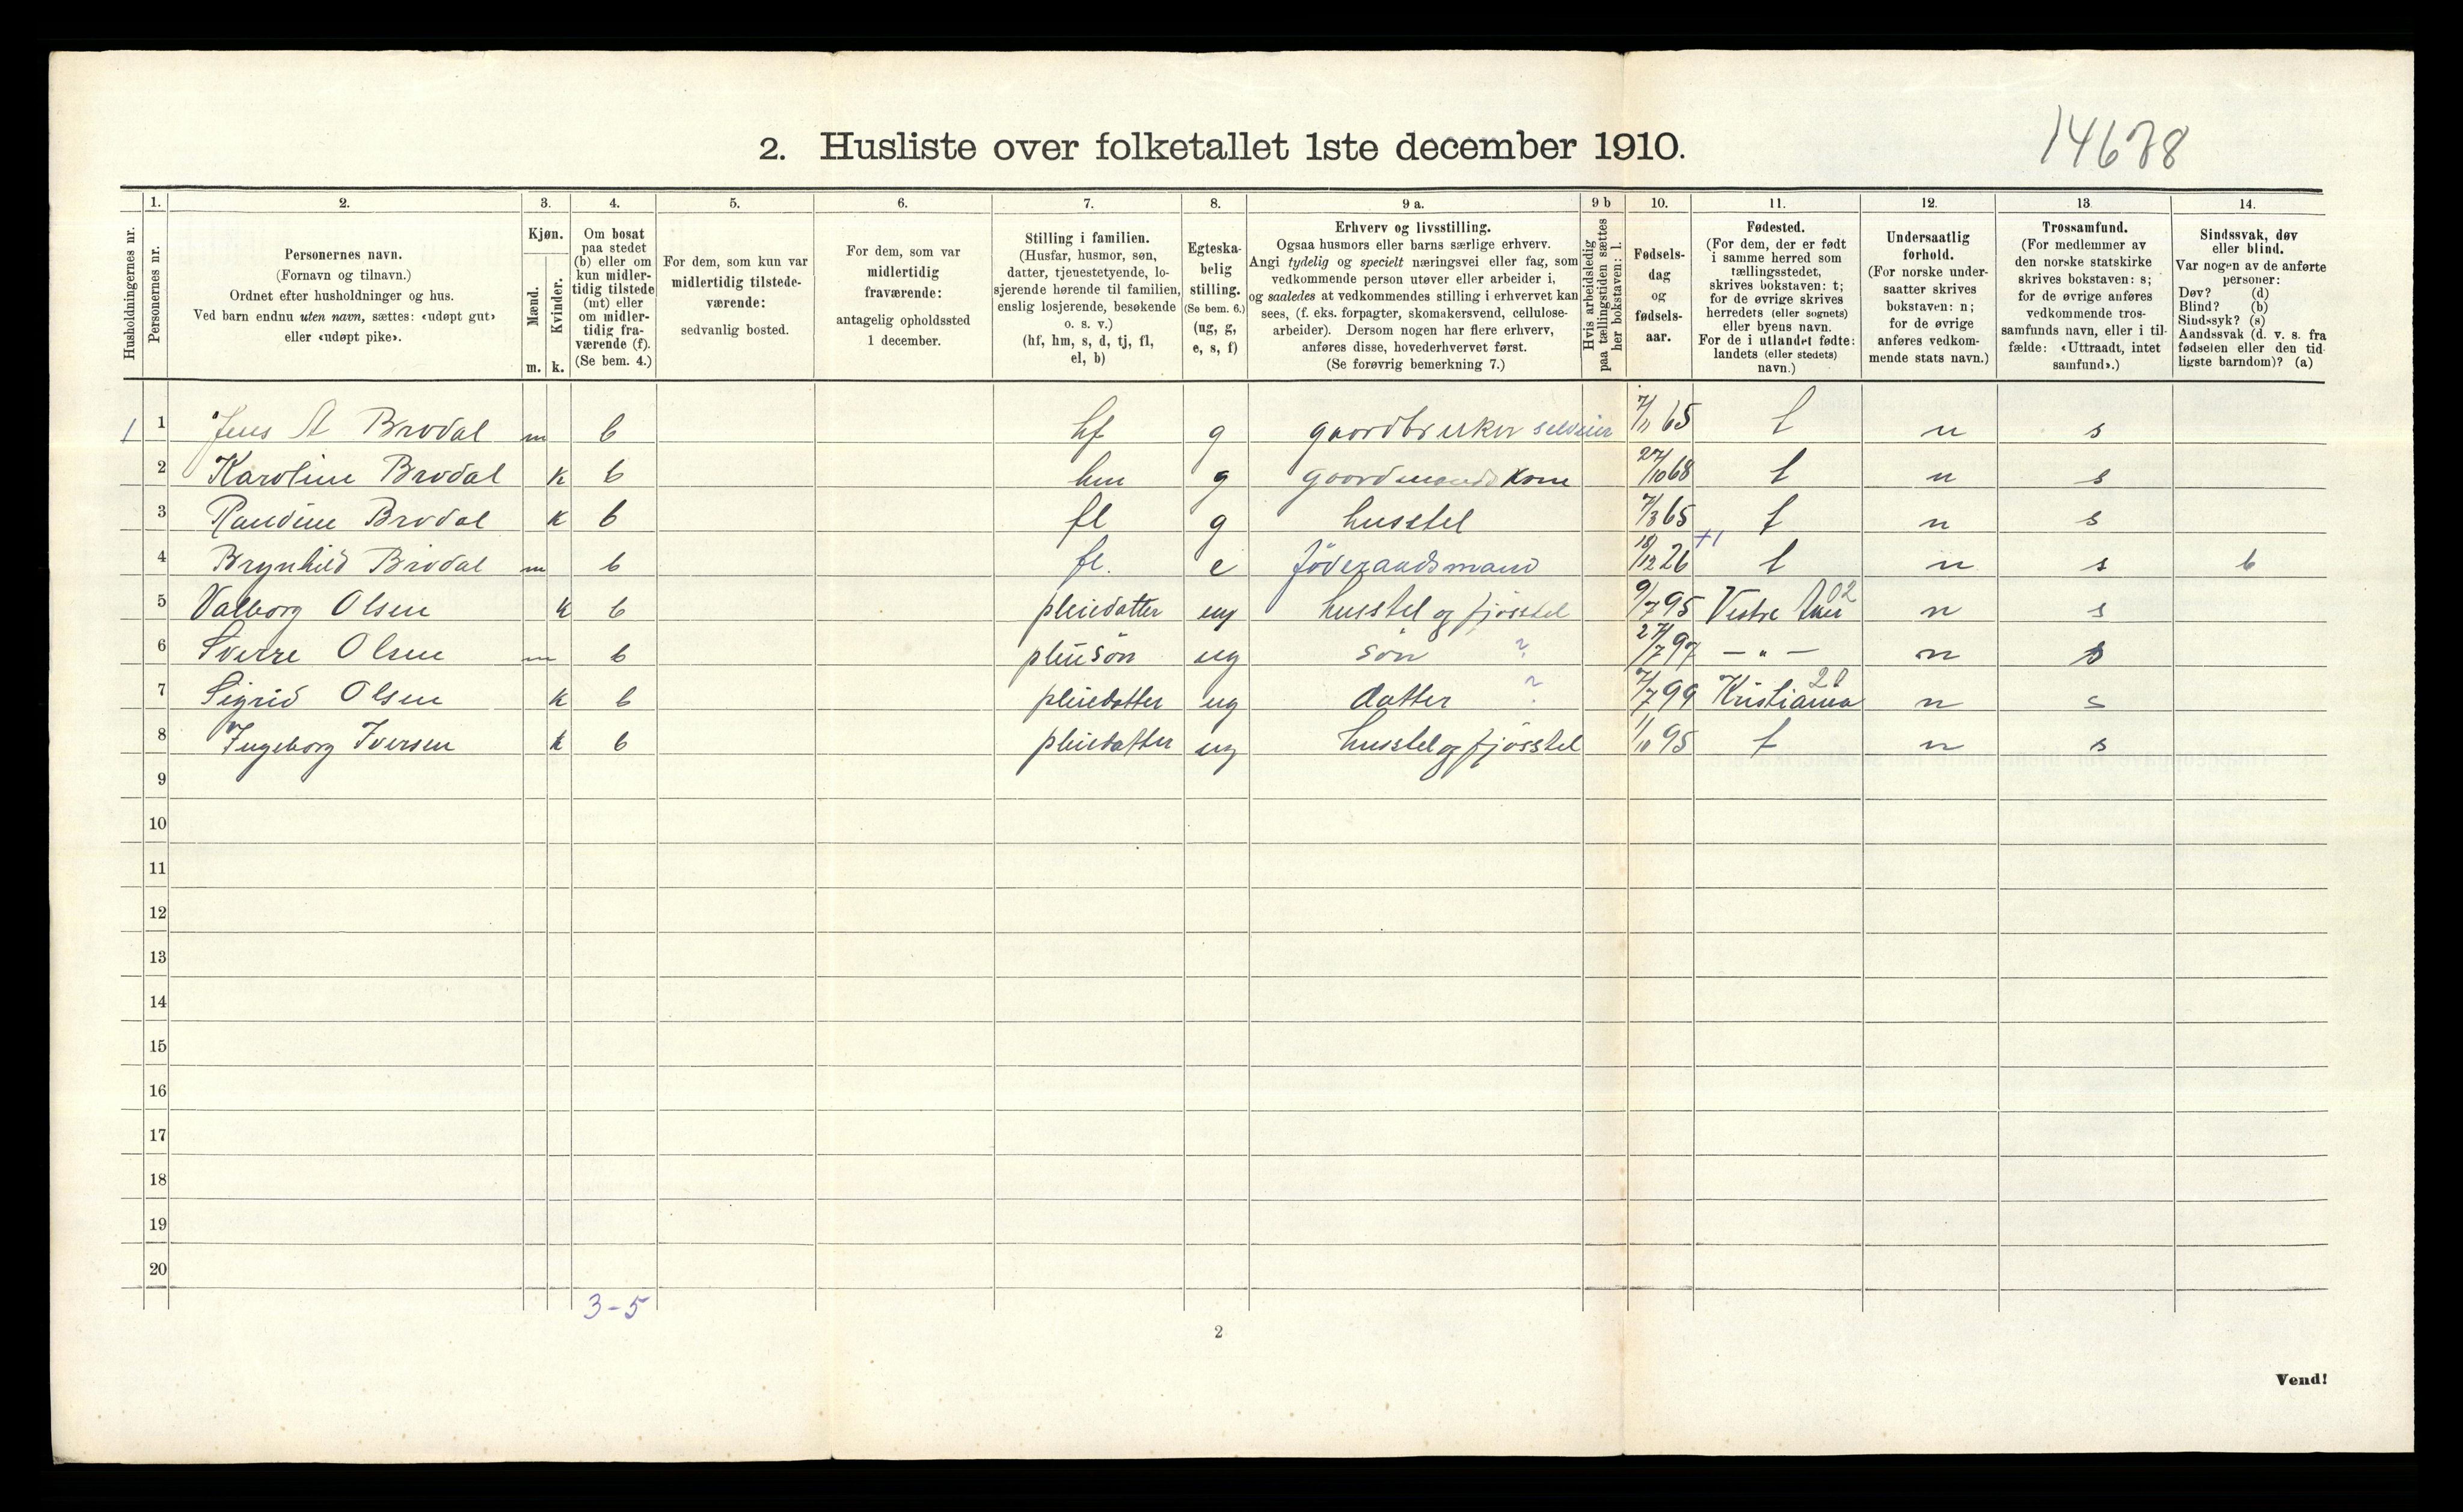 2. Husliste over folketallet 1ste december 1910.
14678
Husholdningernes nr.
1. Personernes nr.
2. Personernes navn.
(Fornavn og tilnavn.)
Ordnet efter husholdninger og hus.
Ved barn endnu uten navn, sættes: «udøpt gut»
eller «udøpt pike».
3. Kjøn.
Mænd. Kvinder.
m. k.
4. Om bosat
paa stedet
(b) eller om
kun midler-
tidig tilstede
(mt) eller
om midler-
tidig fra-
værende (f).
(Se bem. 4.)
5. For dem, som kun var
midlertidig tilstede-
værende:
sedvanlig bosted.
6. For dem, som var
midlertidig
fraværende:
antagelig opholdssted
1 december.
7. Stilling i familien.
(Husfar, husmor, søn,
datter, tjenestetyende, lo-
sjerende hørende til familien,
enslig losjerende, besøkende
o. s. v.)
(hf, hm, s, d, tj, fl,
el, b)
8. Egteska-
belig
stilling.
(Se bem. 6.)
(ug, g,
e, s, f)
9 a. Erhverv og livsstilling.
Ogsaa husmors eller barns særlige erhverv.
Angi tydelig og specielt næringsvei eller fag, som
vedkommende person utøver eller arbeider i,
og saaledes at vedkommendes stilling i erhvervet kan
sees, (f. eks. forpagter, skomakersvend, cellulose-
arbeider). Dersom nogen har flere erhverv,
anføres disse, hovederhvervet først.
(Se forøvrig bemerkning 7.)
9 b Hvis arbeidsledig
paa tællingstiden sættes
her bokstaven: l.
10. Fødsels-
dag
og
fødsels-
aar.
11. Fødested.
(For dem, der er født
i samme herred som
tællingsstedet,
skrives bokstaven: t;
for de øvrige skrives
herredets (eller sognets)
eller byens navn.
For de i utlandet fødte:
landets (eller stedets)
navn.)
12. Undersaatlig
forhold.
(For norske under-
saatter skrives
bokstaven: n;
for de øvrige
anføres vedkom-
mende stats navn.)
13. Trossamfund.
(For medlemmer av
den norske statskirke
skrives bokstaven: s;
for de øvrige anføres
vedkommende tros-
samfunds navn, eller i til-
fælde: «Uttraadt, intet
samfund».)
14. Sindssvak, døv
eller blind.
Var nogen av de anførte
personer:
Døv? (d)
Blind? (b)
Sindssyk? (s)
Aandssvak (d. v. s. fra
fødselen eller den tid-
ligste barndom)? (a)
1 1 Jens A Brodal m b hf g gaardbruker selveier 7/11 65 t n s
2 Karoline Brodal k b hm g gaardmandskone 27/10 68 t n s
3 Randine Brodal k b fl g husstel 7/3 65 t n s
4 Brynhild Brodal m b fl. e föderaadsmand 18/12 26 +1 t n s b
5 Valborg Olsen k b pleiedatter ug husstel og fjösstel 9/7 95 Vestre Aker 02 n s
6 Sverre Olsen m b pleiesön ug sön ? 27/7 97 — " — n s
7 Sigrid Olsen k b pleiedatter ug datter ? 7/7 99 Kristiania 20 n s
8 Ingeborg Iversen k b pleiedatter ug husstel og fjösstel 1/10 95 t n s
9
10
11
12
13
14
15
16
17
18
19
20
3-5
2
Vend!